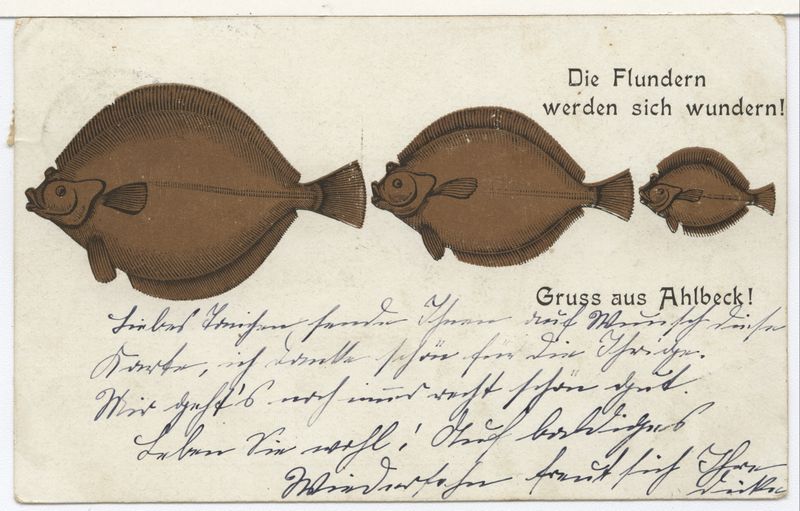 Die Flundern
werden sich wundern!
Gruss aus Ahlbeck!
Liebes sende Ihnen auf Wunsch diese
Karte, ich danke schön für die Ihrige.
Mir geht's noch immer recht schön gut.
Leben Sie wohl! Auf baldiges
Wiedersehn freut sich Ihre